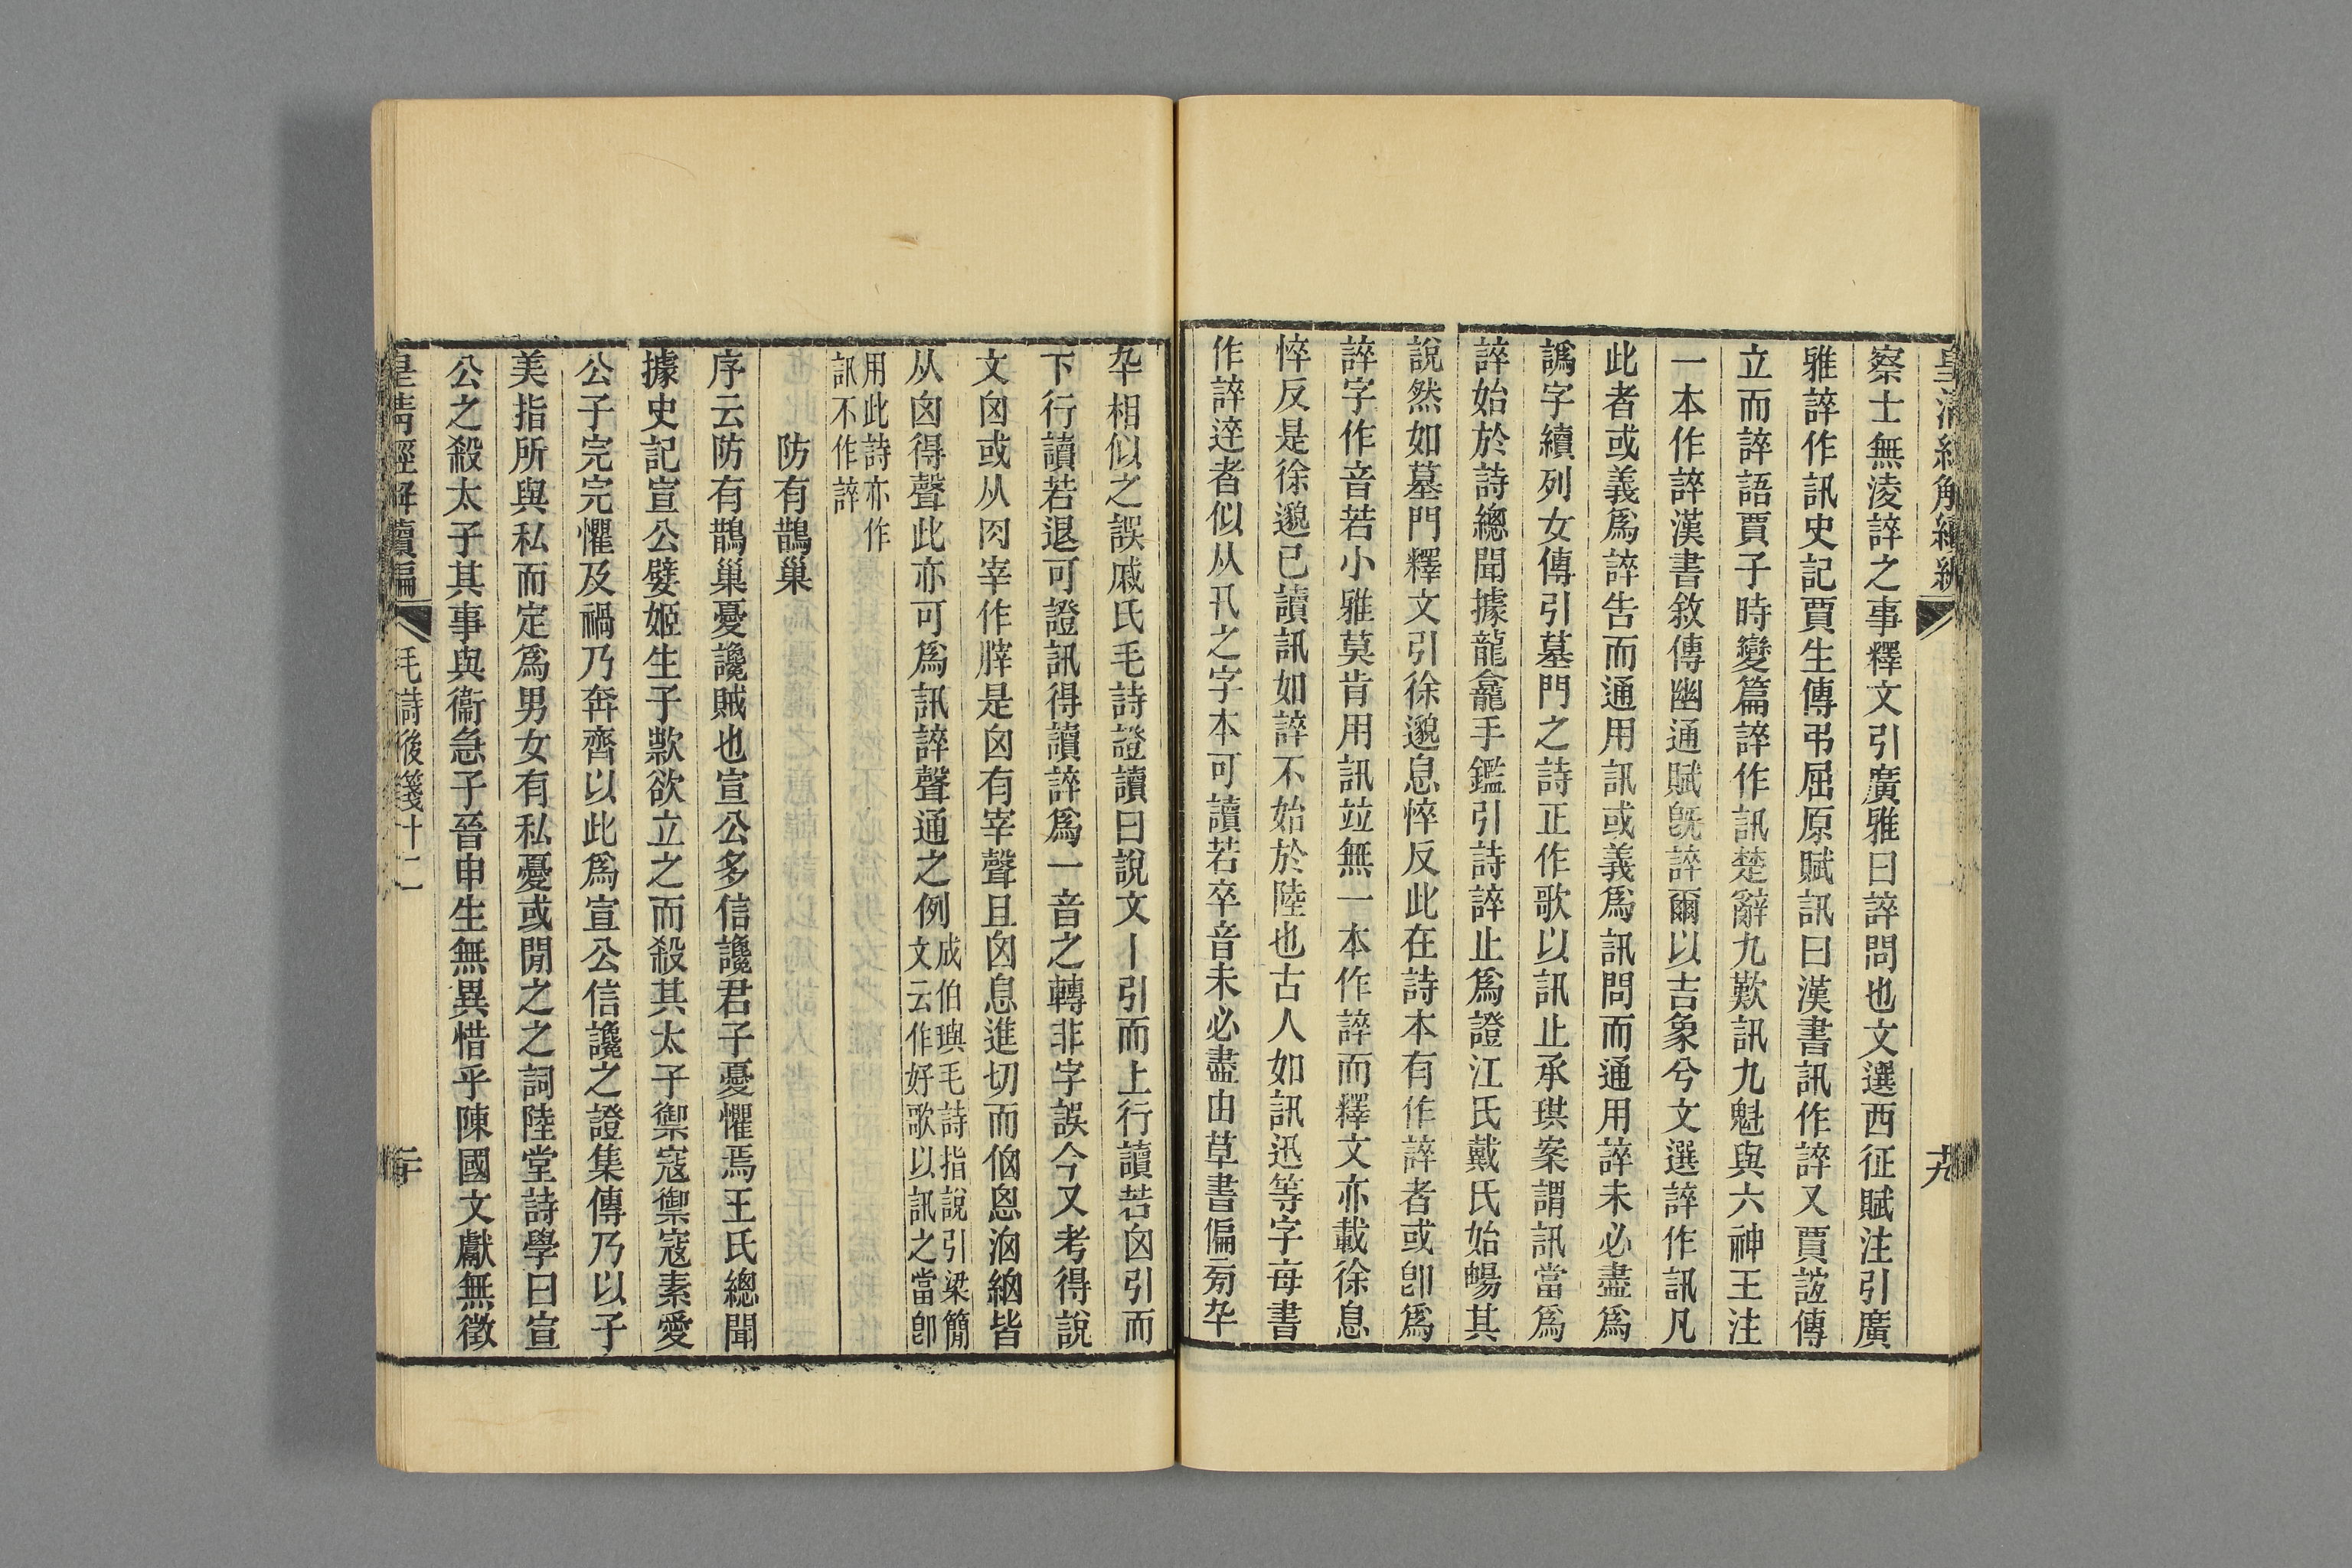 皇清經解續編
十九
察士無淩誶之事釋文引廣雅曰誶問也文選西征賦注引廣
雅誶作訊史記賈生傳弔屈原賦訊曰漢書訊作誶又賈誼傳
立而誶語賈子時變篇誶作訊楚辭九歎訊九魁與六神王注
一本作誶漢書敘傳幽通賦旣誶爾以吉象兮文選誶作訊凡
此者或義爲誶告而通用訊或義爲訊問而通用誶未必盡爲
譌字續列女傳引墓門之詩正作歌以訊止承珙案謂訊當爲
誶始於詩總聞據龍龕手鑑引詩誶止爲證江氏戴氏始暢其
說然如墓門釋文引徐邈息悴反此在詩本有作誶者或卽爲
誶字作音若小雅莫肯用訊竝無一本作誶而釋文亦載徐息
悴反是徐邈已讀訊如誶不始於陸也古人如訊迅等字每書
作誶逩者似从卂之字本可讀若卒音未必盡由草書偏旁卆
卆相似之誤戚氏毛詩證讀曰說文丨引而上行讀若囟引而
下行讀若退可證訊得讀誶爲一音之轉非字誤今又考得說
文囟或从肉宰作䏁是囟有宰聲且囟息進切而㑰恖洶細皆
从囟得聲此亦可爲訊誶聲通之例成伯璵毛詩指說引梁簡
文云作好歌以訊之當卽
用此詩亦作
訊不作誶
防有鵲巢
序云防有鵲巢憂讒賊也宣公多信讒君子憂懼焉王氏總聞
據史記宣公嬖姬生子款欲立之而殺其太子禦寇禦寇素愛
公子完完懼及禍乃奔齊以此爲宣公信讒之證集傳乃以予
美指所與私而定爲男女有私憂或閒之之詞陸堂詩學曰宣
公之殺太子其事與衞急子晉申生無異惜乎陳國文獻無徵
皇清經解續編
毛詩後箋十二
二十